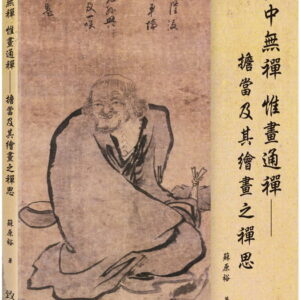 中無禪 惟畫通禪——
擔當及其繪畫之禪思
蘇原裕 著
無禪 惟畫通禪——擔當及其繪畫之禪思 蘇原裕 著 致